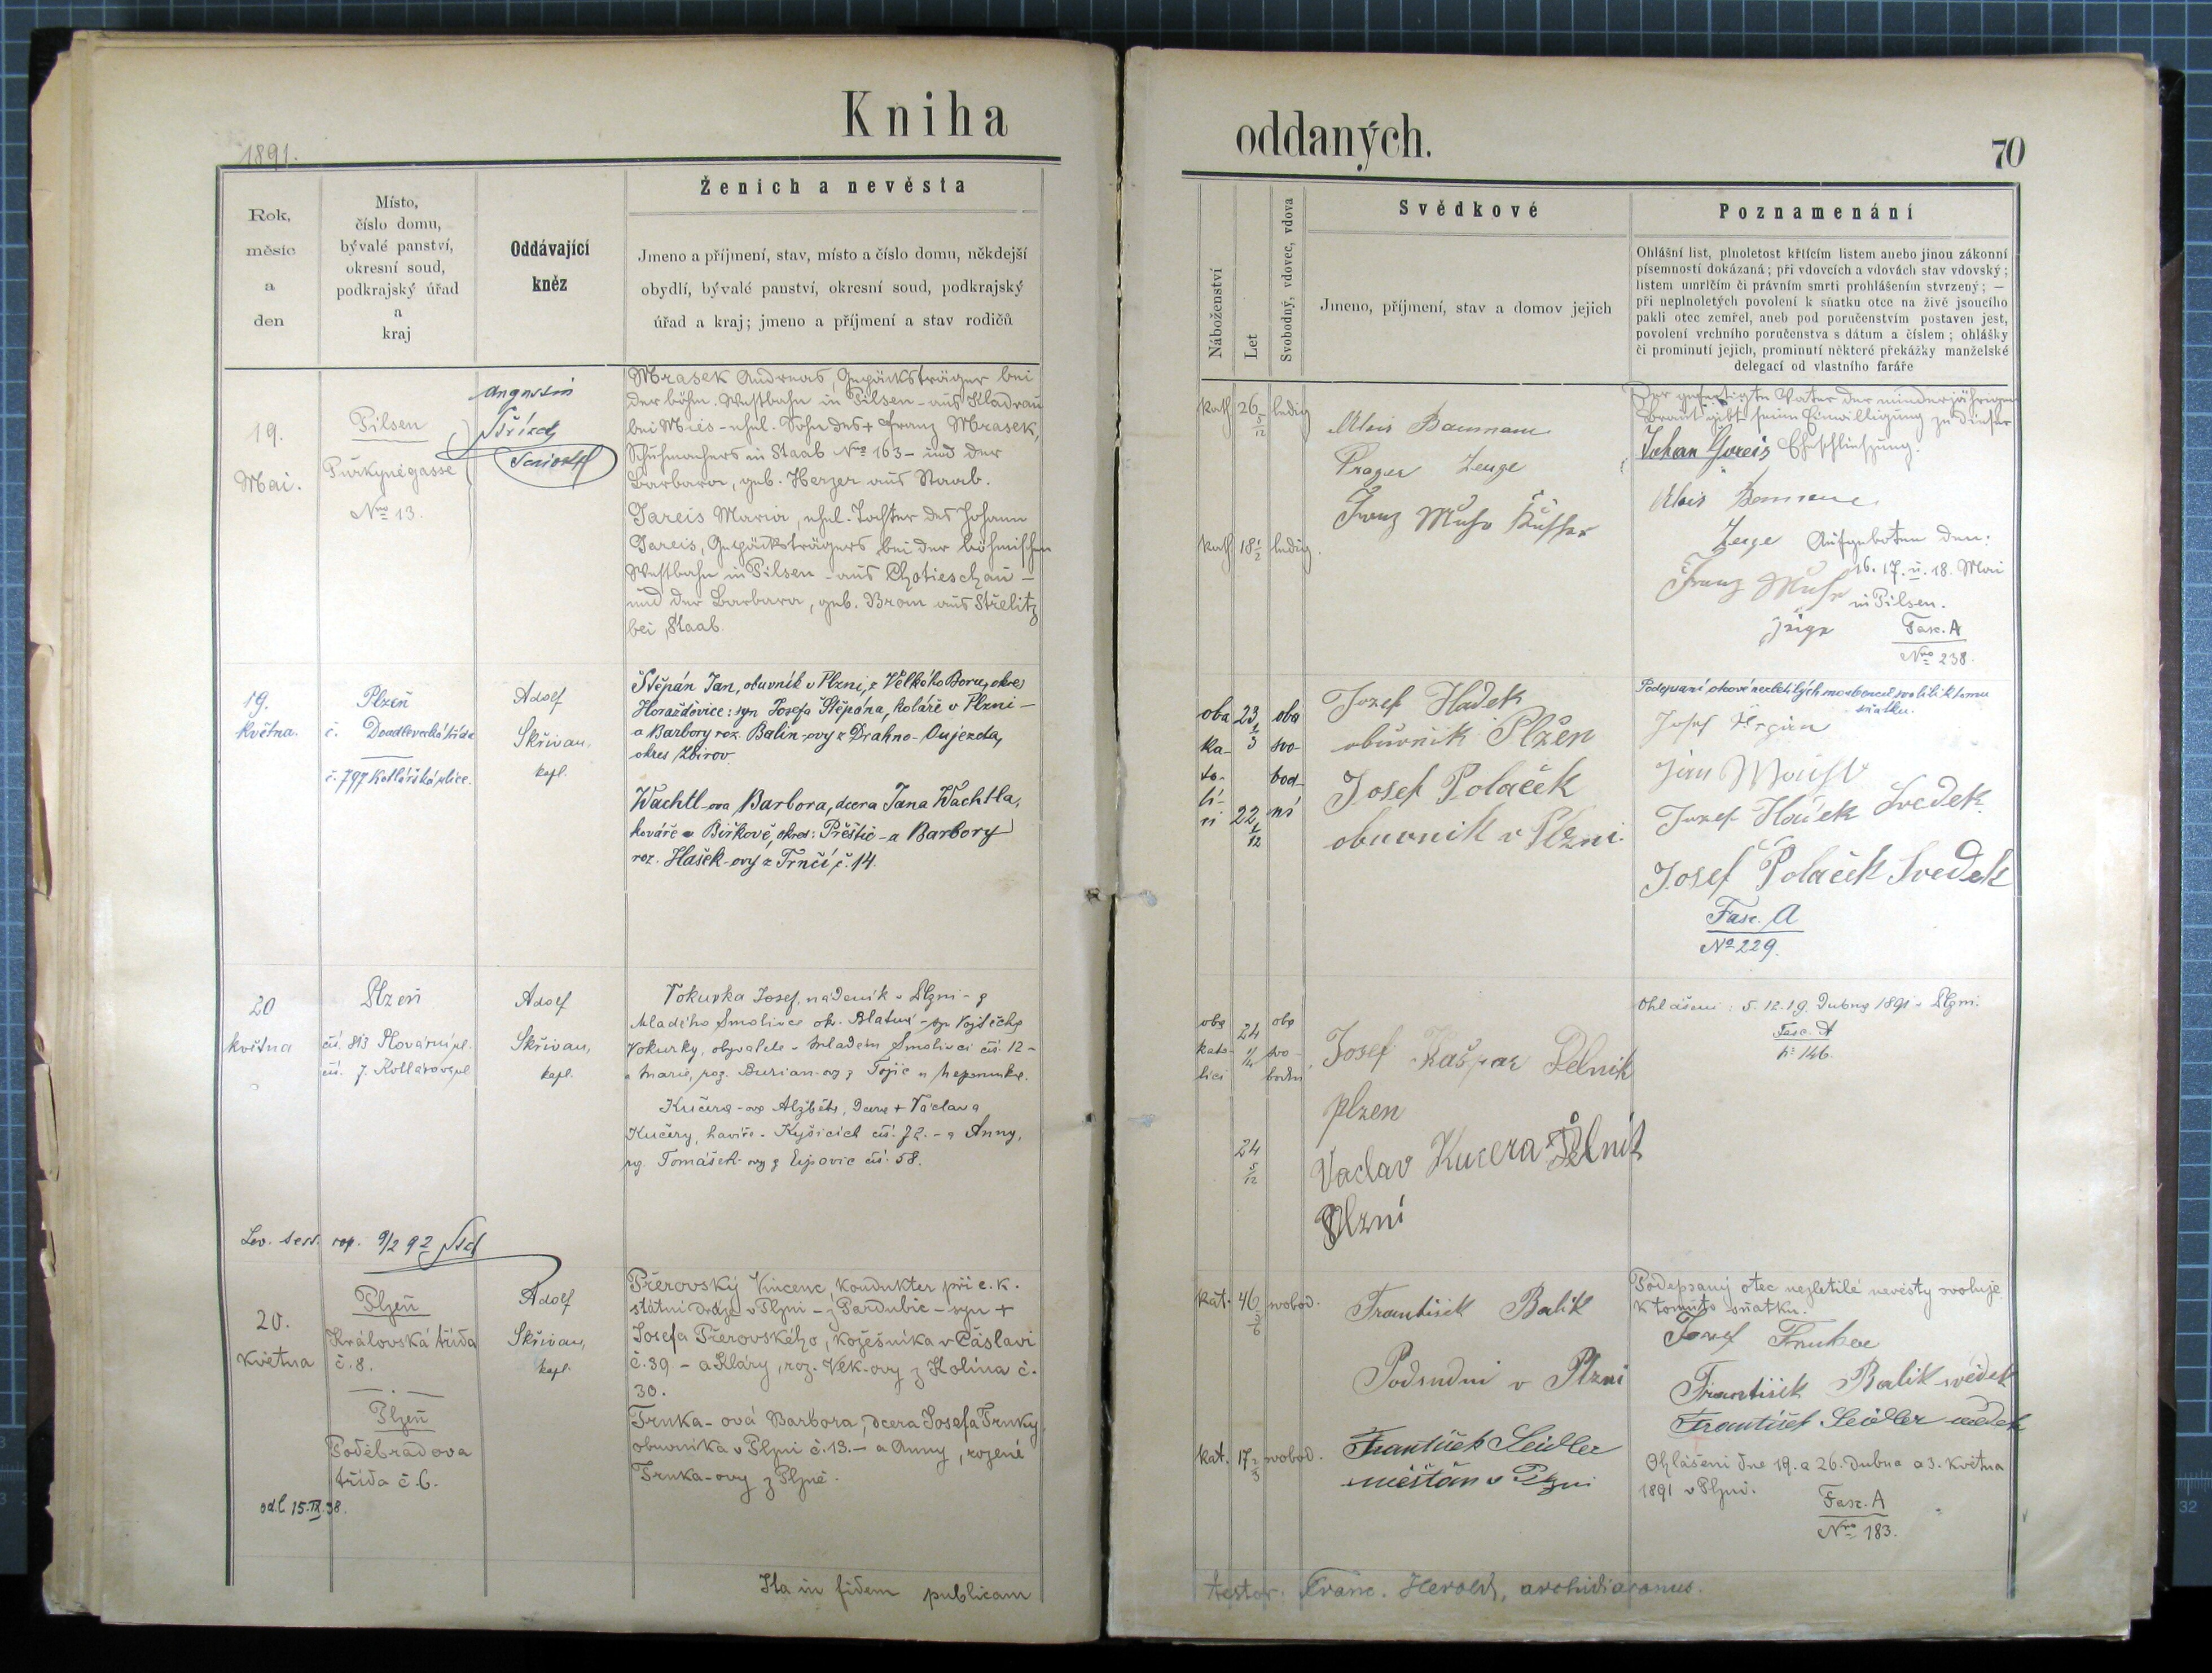 Kniha
1891.
Rok,
měsíc
a
den
Místo,
číslo domu,
bývalé panství,
okresní soud,
podkrajský úřad
a
kraj
Oddávající
kněz
Ženich a nevěsta
Jmeno a příjmení, stav, místo a číslo domu, někdejší
obydlí, bývalé panství, okresní soud, podkrajský
úřad a kraj; jmeno a příjmení a stav rodičů
19.
Mai.
Pilsen
Purkyněgasse
Nro 13.
Mrasek Andreas, Gepäcksträger bei
der böhm. Westbahn in Pilsen - aus Kladrau
bei Mies - ehel. Sohn des + Franz Mrasek,
Schuhmachers in Staab Nro 163 - und der
Barbara, geb. Herzer aus Staab.
Gareis Maria, ehel. Tochter des Johann
Gareis, Gepäcksträgers bei der böhmischen
Westbahn in Pilsen - aus Chotieschau -
und der Barbara, geb. Brom aus Střelitz
bei Staab.
19.
května.
Plzeň
č. Doudlevecká třída
č. 797 Kollárská ulice.
Adolf
Skřivan,
kapl.
Štěpán Jan, obuvník v Plzni, z Velkého Boru, okres
Horažďovice: syn Josefa Štěpána, koláře v Plzni -
a Barbory roz. Balín-ovy z Drahno-Oujezda,
okres Zbirov.
Wachtl-ova Barbora, dcera Jana Wachtla,
kováře v Biřkově, okres: Přeštic - a Barbory
roz. Hašek-ovy z Trnčí, č. 14.
20
května
Plzeň
čís. 813 Plovární ul.
čís. 7. Kollárova ul
Adolf
Skřivan,
kapl.
Vokurka Josef, nádeník v Plzni - z
Mladého Smolivce ok. Blatná - syn Vojtěcha
Vokurky, obyvatele v Mladém Smolivci čís. 12 -
a Marie, roz. Burian-ovy z Tojic u Nepomuka.
Kučera-ova Alžběta, dcera + Václava
Kučery, havíře v Kyšicích čís. 72. - a Anny,
roz. Tomášek-ovy z Ejpovic čís. 58.
20.
května
Plzeň
Královská třída
č. 8.
Plzeň
Poděbradova
třída č. 6.
odl. 15.IX.38.
Adolf
Skřivan,
kapl.
Přerovský Vincenc, kondukter při c. k.
státní dráze v Plzni - z Pardubic - syn +
Josefa Přerovského, kožešníka v Čáslavi
č. 39 - a Kláry, roz. Vlk-ovy z Kolína č.
30.
Trnka-ová Barbora, dcera Josefa Trnky,
obuvníka v Plzni č. 13. - a Anny, rozené
Trnka-ovy z Plzně.
Ita in fidem publicam
oddaných.
70
Náboženství
Let
Svobodný, vdovec, vdova
Svědkové
Jmeno, příjmení, stav a domov jejich
Poznamenání
Ohlášní list, plnoletost křtícím listem anebo jinou zákonní
písemností dokázaná; při vdovcích a vdovách stav vdovský;
listem umrlčím či právním smrti prohlášením stvrzený; —
při neplnoletých povolení k sňatku otce na živě jsoucího
pakli otec zemřel, aneb pod poručenstvím postaven jest,
povolení vrchního poručenstva s dátum a číslem; ohlášky
či prominutí jejich, prominutí některé překážky manželské
delegací od vlastního faráře
kath 26 5/12 ledig
kath 18 1/2 ledig.
Alois Baumann
Prager Zeuge
Der gefertigte Vater der minderjährigen
Braut gibt seine Einwilligung zu dieser
Johan Gareis Eheschließung.
Aufgeboten den:
16. 17. u. 18. Mai
in Pilsen.
Fasc. A
Nro 238.
oba 23 oba
ka- svo-
to- bod-
li- ní
ci 22 1/12
Josef
obuvník Plzen
Josef Polaček
obuvnik v Plzni.
Podepsaní otcové nezletilých snoubenců svolili k tomu
sňatku.
Josef Polaček Svedek
Fasc. A
No 229.
oba 24 oba
kato- svo-
lici bodni
24 5/12
Josef Kašpar Delnik
plzen
Vaclav Kucera Delnik
Plzni
Ohlášeni: 5. 12. 19. Dubna 1891 v Plzni.
Fasc. A
No 146.
kat. 46 svobod.
kat. 17 2/3 svobod.
František Balik
v Plzni
František Seidler
měšťan v Plzni
Podepsaný otec nezletilé nevěsty svoluje
k tomuto sňatku.
Josef Trnka
František Balik svědek
František Seidler svědek
Ohlášeni dne 19. a 26. dubna a 3. května
1891 v Plzni.
Fasc. A
Nro 183.
testor. Franc. Herold, archidiaconus.